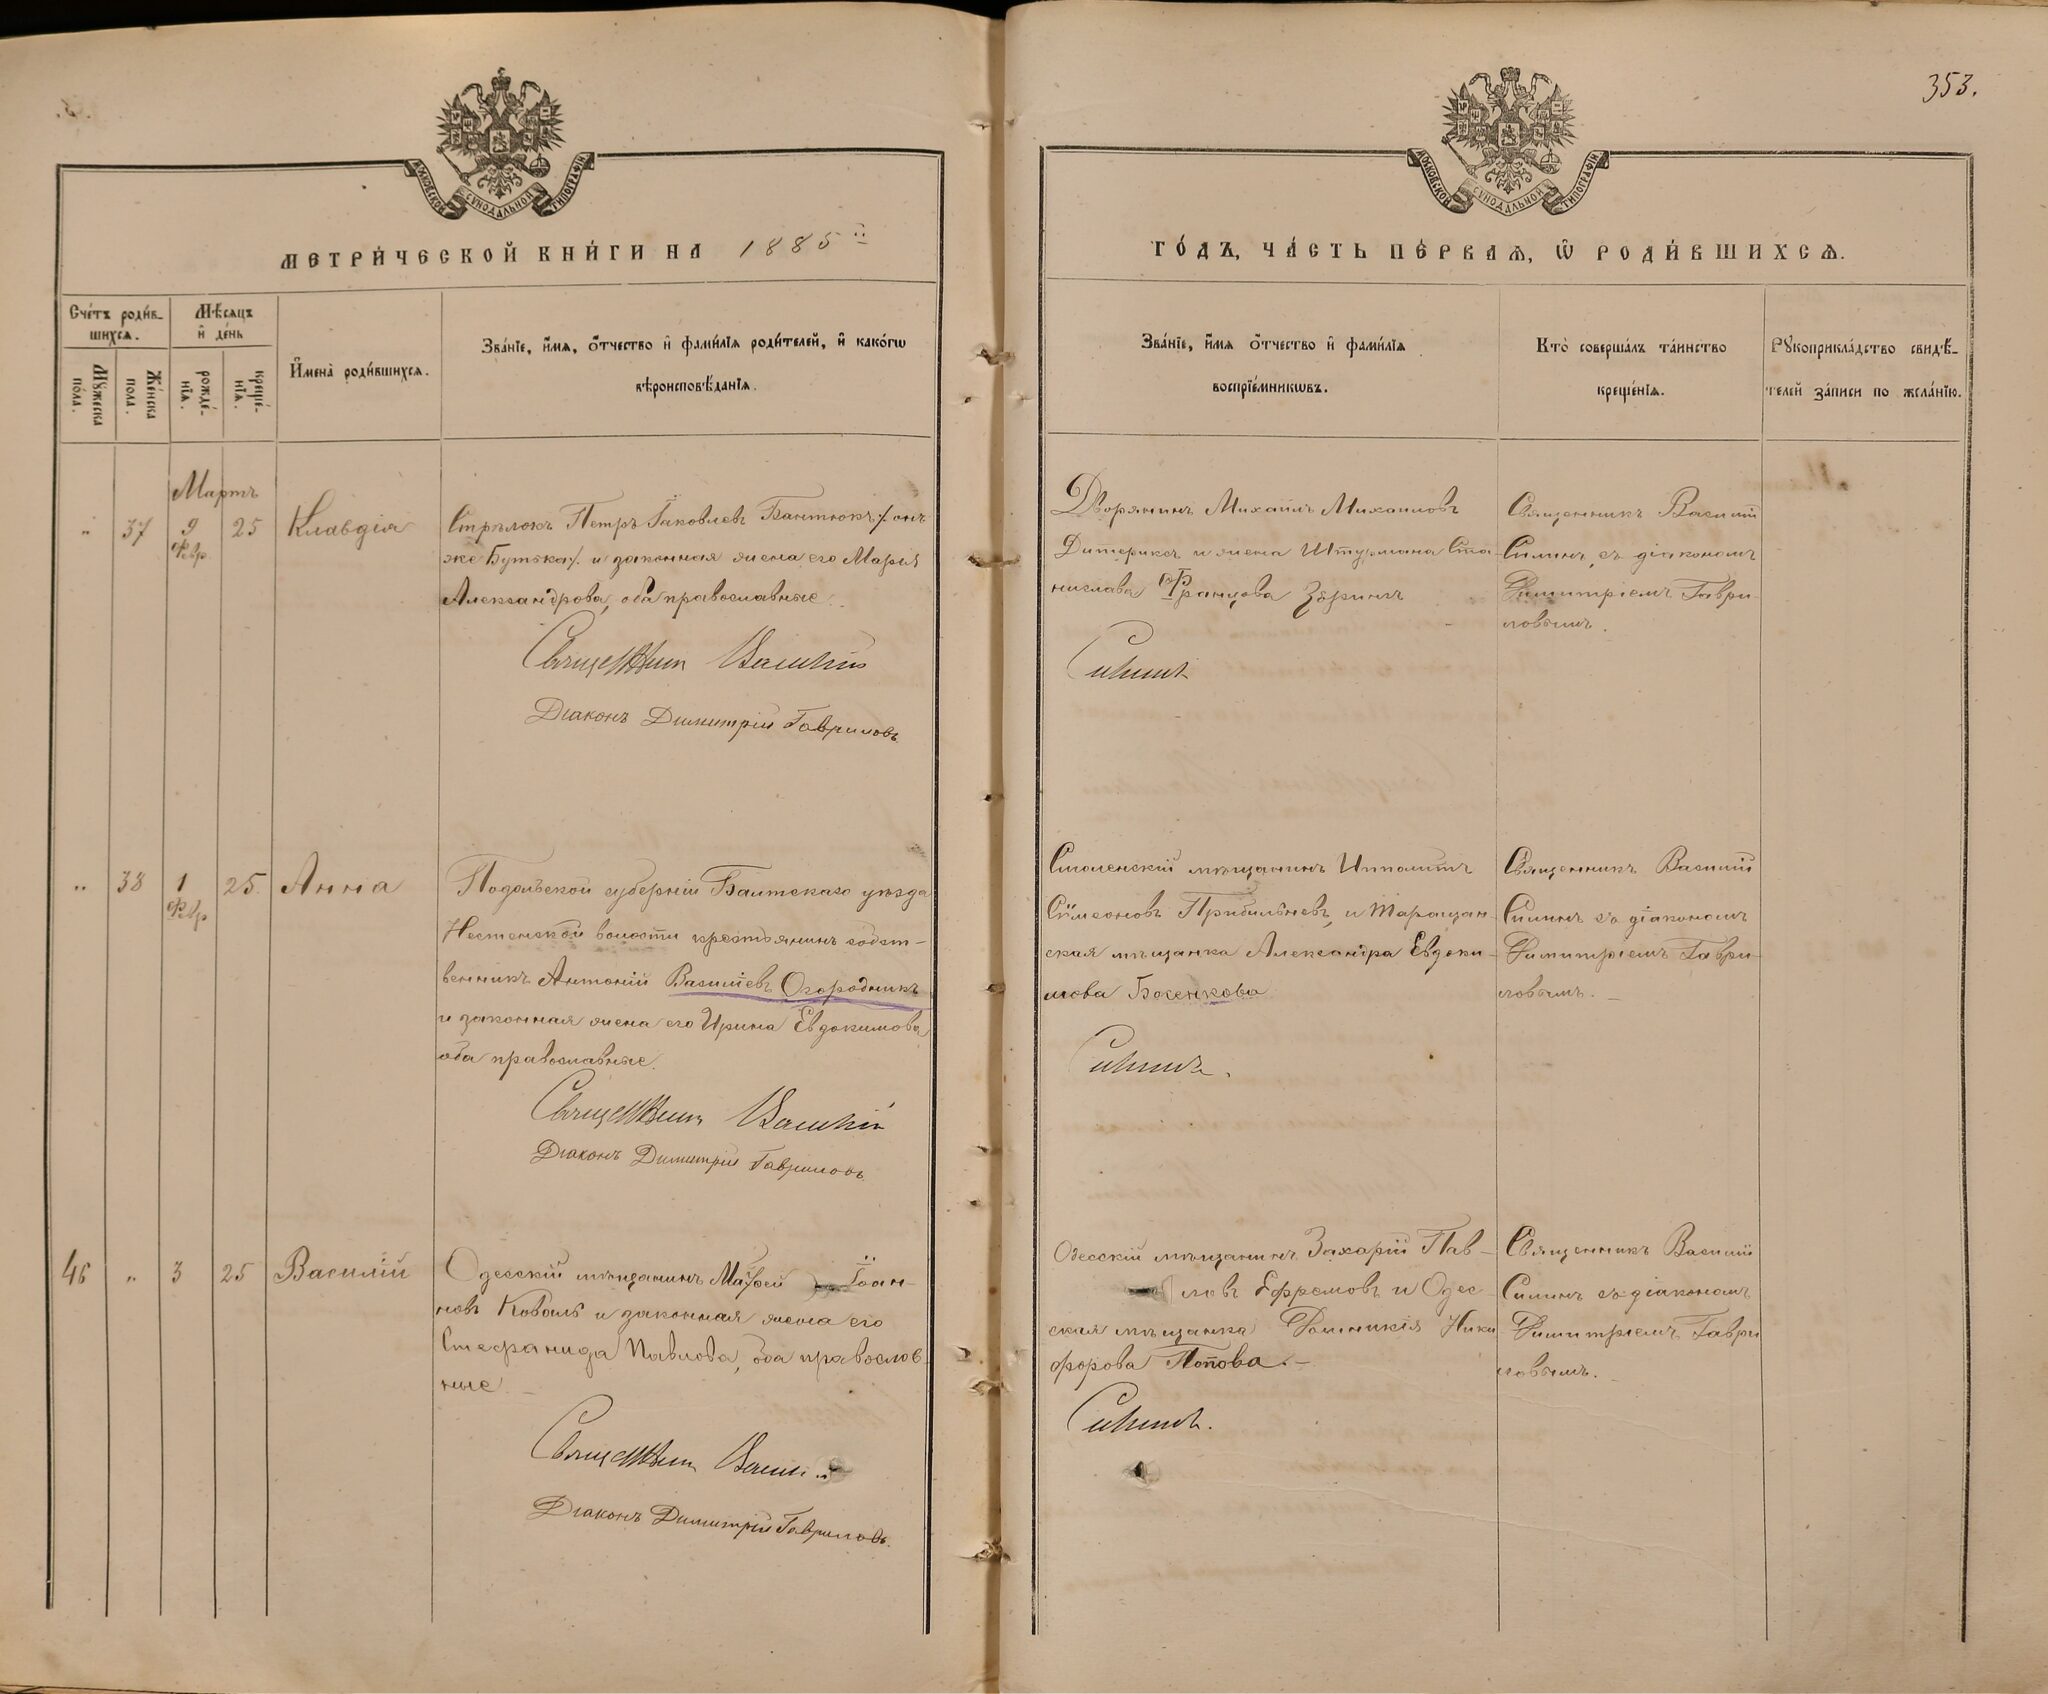 353.
МОСКОВСКОЙ СУНОДАЛЬНОЙ ТИПОГРАФІИ
МОСКОВСКОЙ СУНОДАЛЬНОЙ ТИПОГРАФІИ
МЕТРИ́ЧЕСКОЙ КНИ́ГИ НА 1885й
ГО́ДЪ, ЧА́СТЬ ПЕ́РВАѦ, Ѽ РОДИ́ВШИХСѦ.
Сче́тъ роди́в-
шихсѧ.
Мꙋ́жеска
по́ла.
Же́нска
пола.
Мѣ́сѧцъ
и҆ де́нь
рожде́-
нїѧ.
креще́-
нїѧ.
И҆мена̀ роди́вшихсѧ.
Зва́нїе, и҆́мѧ, ѻ҆́тчество и҆ фами́лїѧ роди́телей, и҆ како́гѡ
вѣроисповѣ́данїѧ.
Зва́нїе, и҆́мѧ ѻ҆́тчество и҆ фами́лїѧ
воспрїе́мникѡвъ.
Кто̀ соверша́лъ та́инство
креще́нїѧ.
Рꙋкоприкла́дство свидѣ́-
телей за́писи по жела́нїю.
Мартъ
" 37 9 Февр. 25 Клавдія
Стрѣлокъ Петръ Іаковлевъ Бантюкъ /. онъ
же Бутька /. и законная жена его Марія
Александрова, оба православные.
Священникъ Василій
Діаконъ Димитрій Гавриловъ
Дворянинъ Михаилъ Михаиловъ
Дитериксъ и жена Штурмана Ста-
нислава Францова Зѣринъ
Силинъ
Священникъ Василій
Силинъ, съ діакономъ
Димитріемъ Гаври-
ловымъ.
" 38 1 Февр 25. Анна
Подольской губерніи Балтскаго уѣзда
Нестенской волости крестьянинъ собст-
венникъ Антоній Василіевъ Огородникъ
и законная жена его Ирина Евдокимова
оба православные.
Священникъ Василій
Діаконъ Димитрій Гавриловъ
Смоленскій мѣщанинъ Ипполитъ
Сѵмеоновъ Прибильневъ, и Таращан-
ская мѣщанка Александра Евдоки-
мова Босенкова
Силинъ.
Священникъ Василій
Силинъ съ діакономъ
Димитріемъ Гаври-
ловымъ. -
46 " 3 25 Василій
Одесскій мѣщанинъ Матѳей Іоан-
новъ Коваль и законная жена его
Стефанида Павлова, оба православ-
ные. -
Священникъ Васил й
Діаконъ Димитрій Гавриловъ.
Одесскій мѣщанинъ Захарій Пав-
ловъ Ефремовъ и Одес-
ская мѣщанка Домникія Ники
форова Попова. -
Силинъ.
Священникъ Василій
Силинъ съ діакономъ
Димитріемъ Гаври
ловымъ.